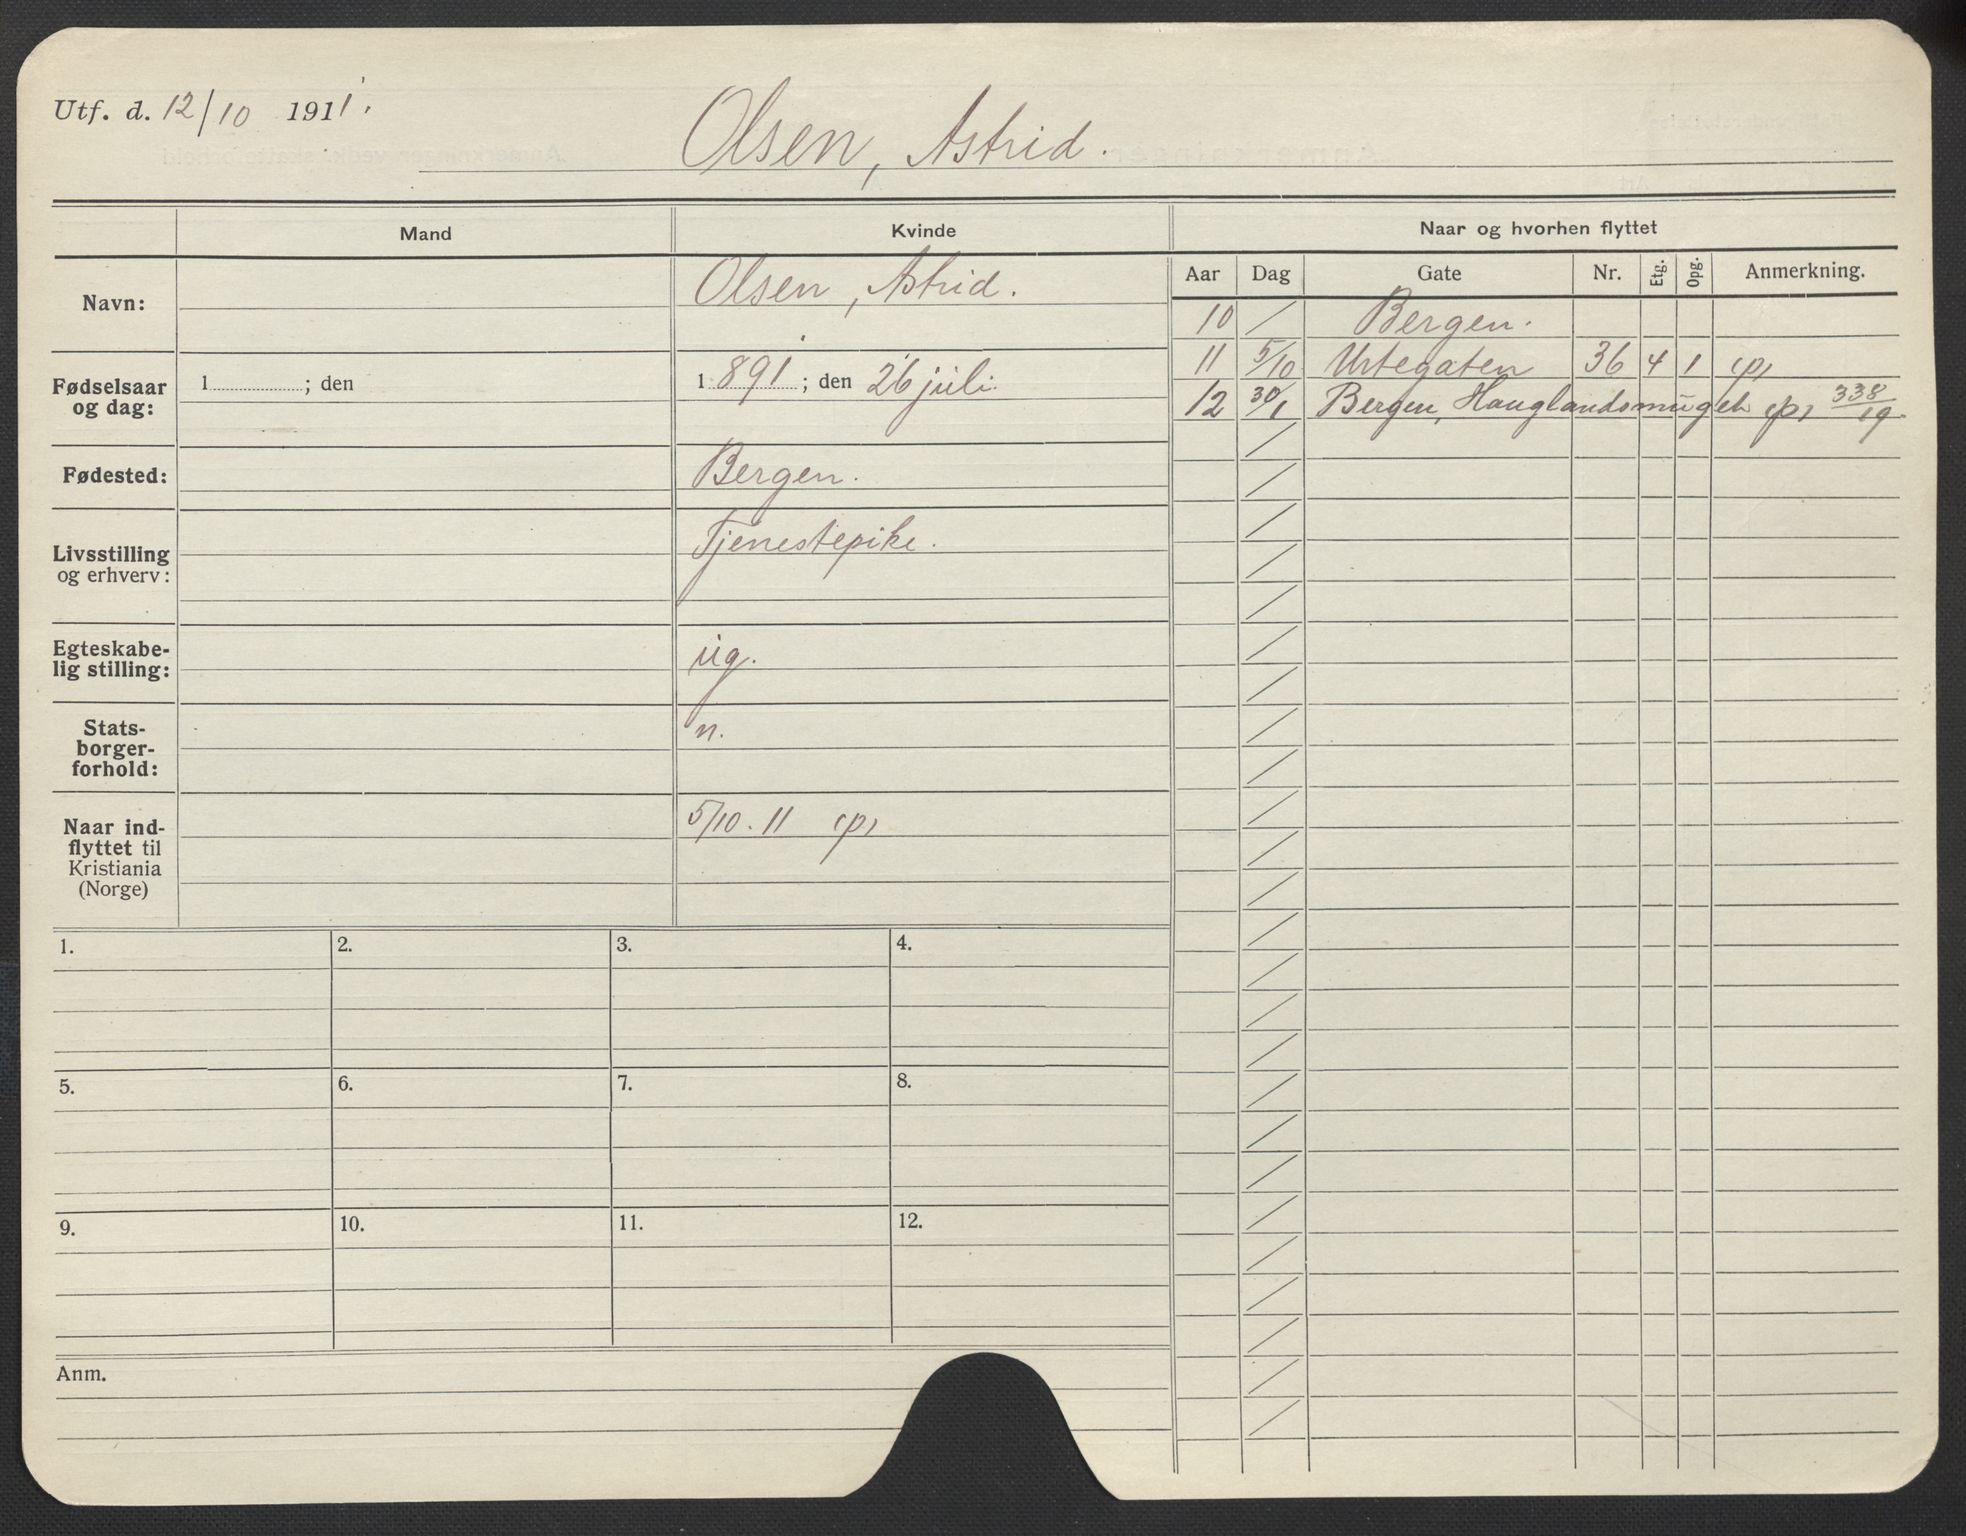 Utf. d. 12/10 1911.
Olsen, Astrid.
Mand
Kvinde
Naar og hvorhen flyttet
Aar Dag Gate Nr. Etg. Opg. Anmerkning.
Navn:
Olsen, Astrid.
10 / Bergen.
11 5/10 Urtegaten 36 4 1 (p)
12 30/1 Bergen, Hauglandsmuget (p) 338/19.
Fødselsaar
og dag:
1 ; den
1 891 ; den 26 juli.
Fødested:
Bergen.
Livsstilling
og erhverv:
Tjenestepike.
Egteskabe-
lig stilling:
ug.
Stats-
borger-
forhold:
n.
Naar ind-
flyttet til
Kristiania
(Norge)
5/10. 11 (p)
1. 2. 3. 4.
5. 6. 7. 8.
9. 10. 11. 12.
Anm.